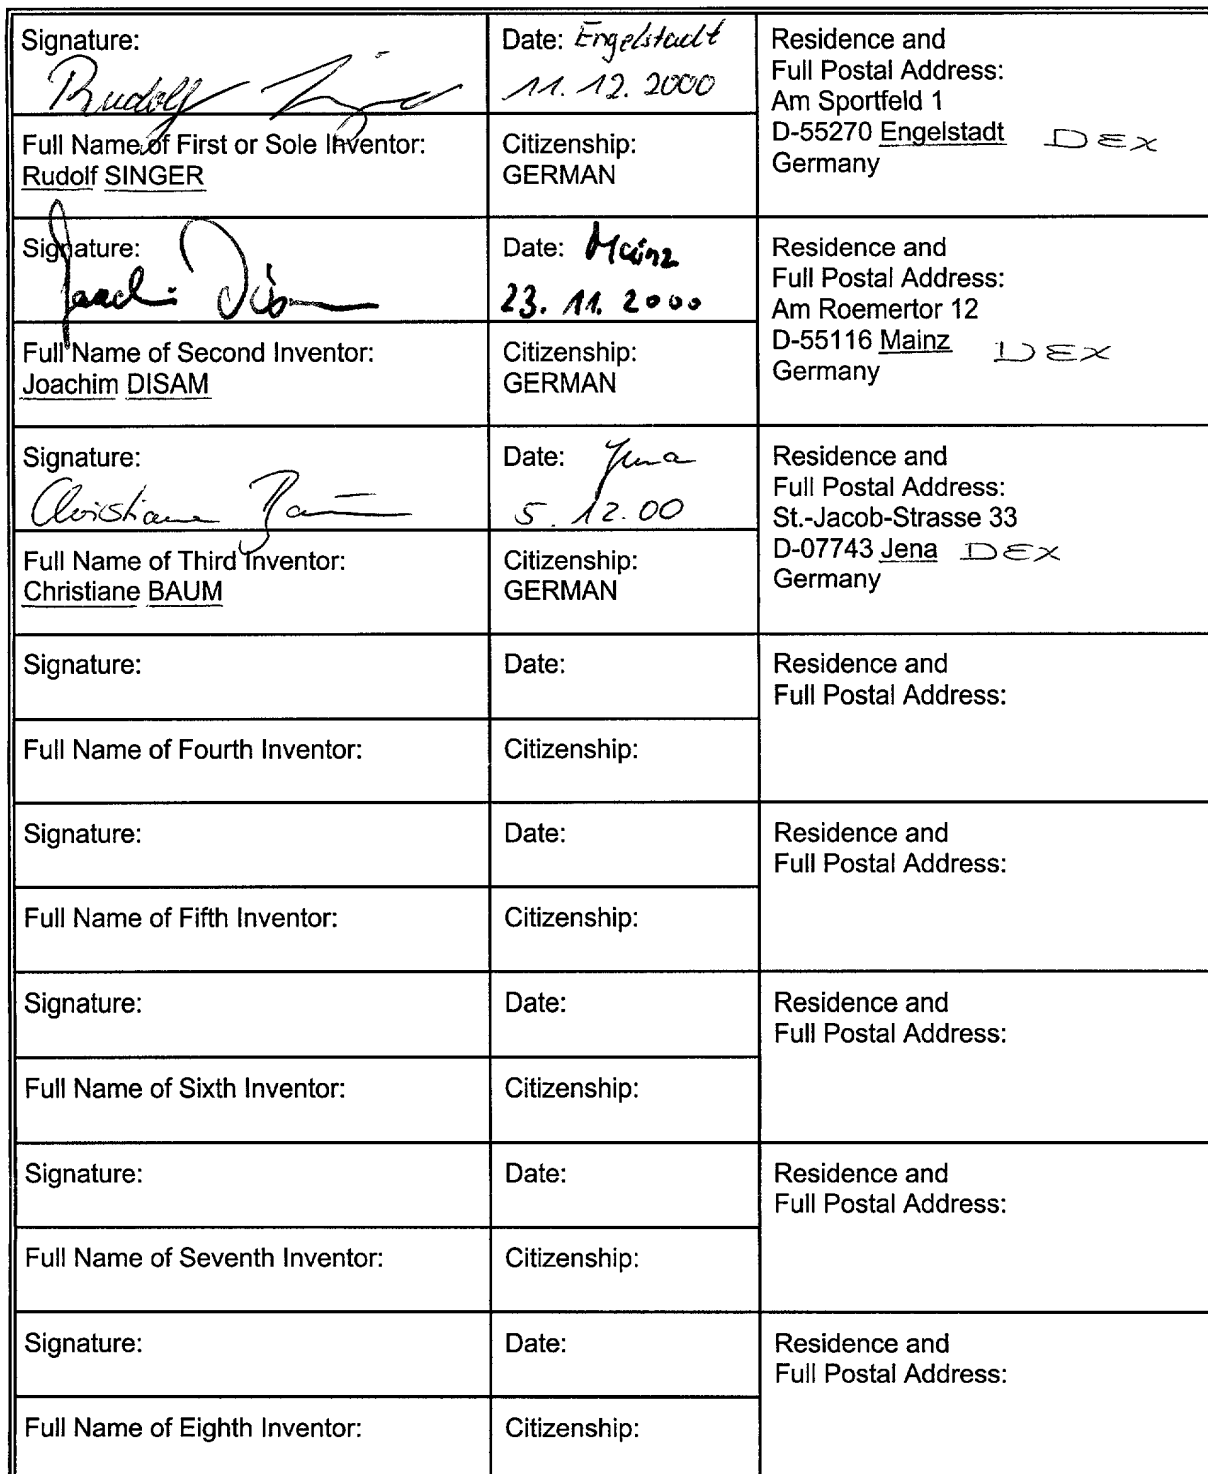 Signature:
Rudolf Singer
Date: Engelstadt
11.12.2000
Residence and
Full Postal Address:
Am Sportfeld 1
D-55270 Engelstadt DEX
Germany
Full Name of First or Sole Inventor:
Rudolf SINGER
Citizenship:
GERMAN
Signature:
Joachi Dis
Date: Mainz
23. 11. 2000
Residence and
Full Postal Address:
Am Roemertor 12
D-55116 Mainz DEX
Germany
Full Name of Second Inventor:
Joachim DISAM
Citizenship:
GERMAN
Signature:
Christiane Baum
Date: Jena
5. 12.00
Residence and
Full Postal Address:
St.-Jacob-Strasse 33
D-07743 Jena DEX
Germany
Full Name of Third Inventor:
Christiane BAUM
Citizenship:
GERMAN
Signature:
Date:
Residence and
Full Postal Address:
Full Name of Fourth Inventor:
Citizenship:
Signature:
Date:
Residence and
Full Postal Address:
Full Name of Fifth Inventor:
Citizenship:
Signature:
Date:
Residence and
Full Postal Address:
Full Name of Sixth Inventor:
Citizenship:
Signature:
Date:
Residence and
Full Postal Address:
Full Name of Seventh Inventor:
Citizenship:
Signature:
Date:
Residence and
Full Postal Address:
Full Name of Eighth Inventor:
Citizenship: